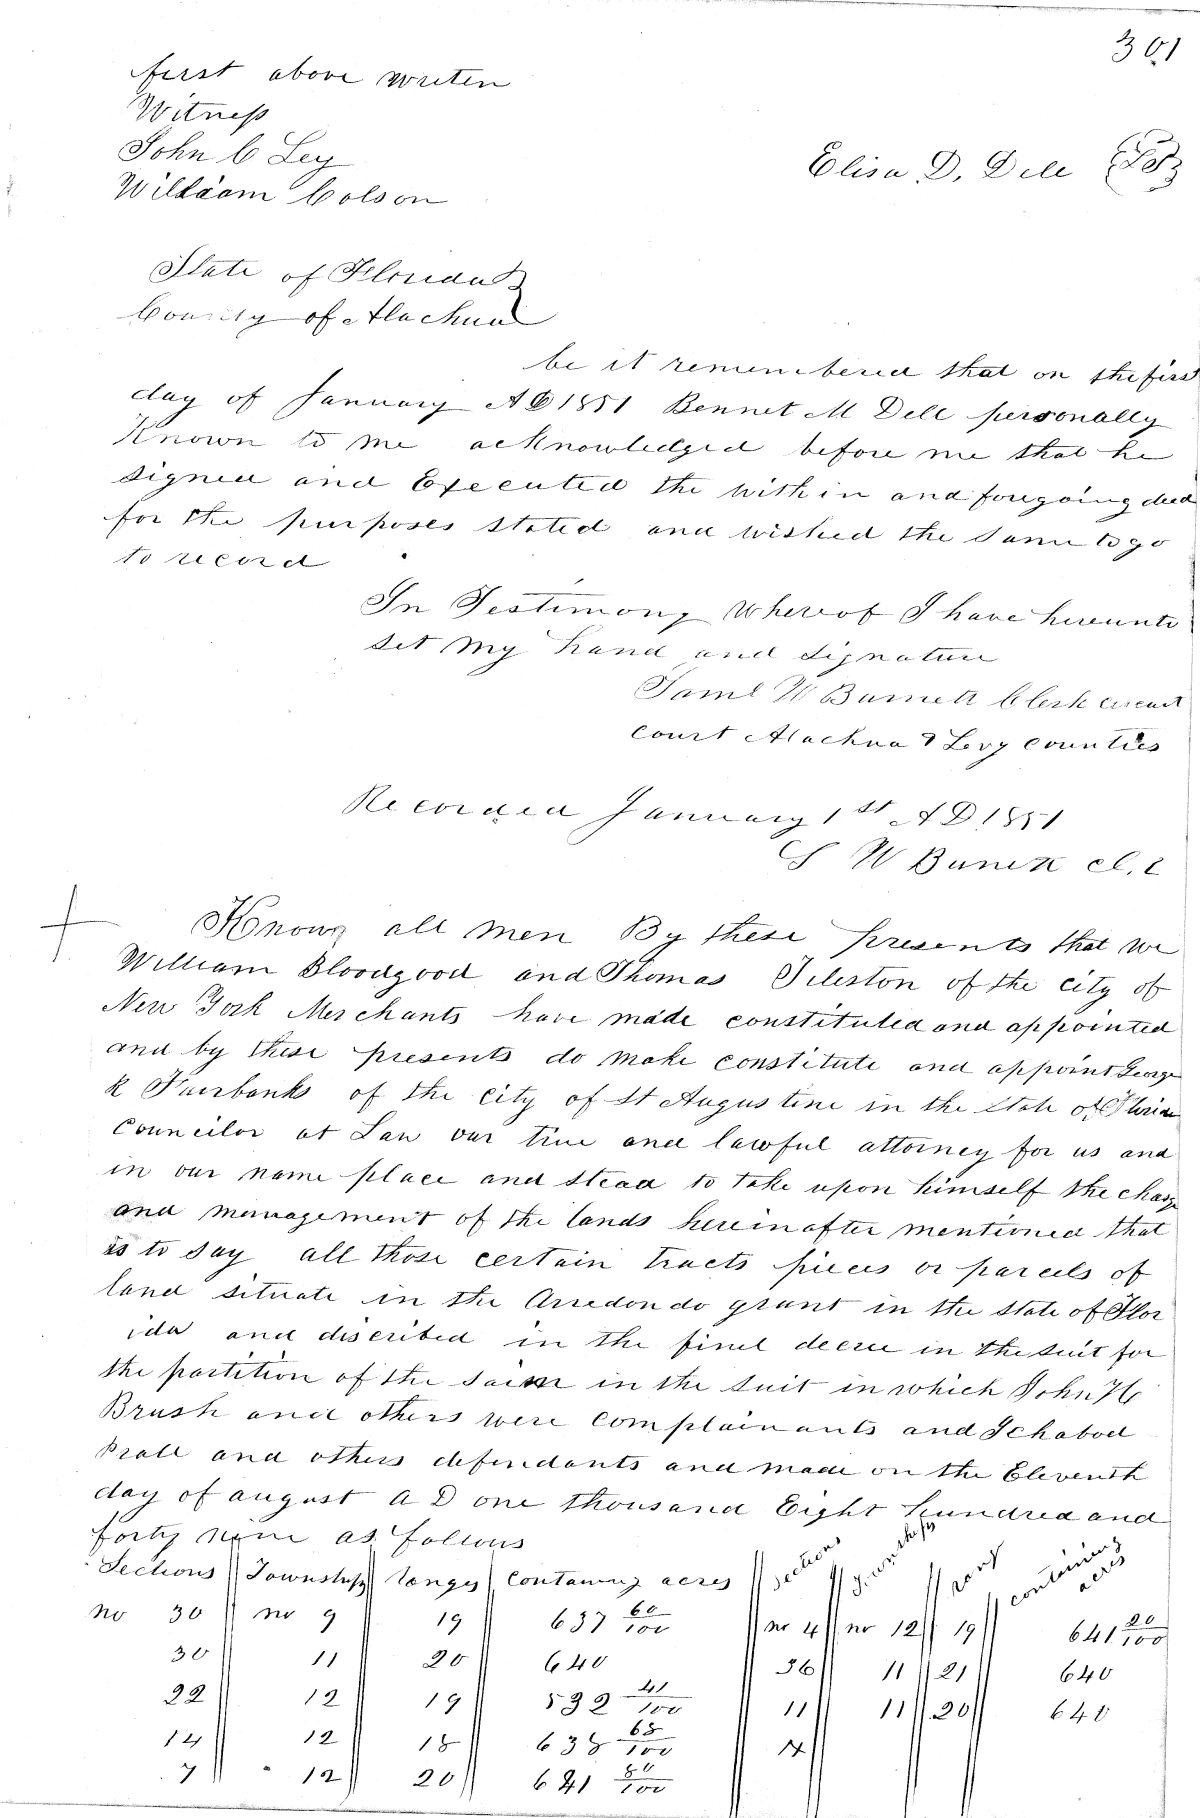 301
first above writen
Witness
John C Ley
Elisa D. Dell
William Colson
State of Florida
County of Alachua
be it remembered that on the first
day of January AD 1851 Bennet M Dell personally
Known to me acknowledged before me that he
signed and Executed the within and foregoing deed
for the purposes stated and wished the same to go
to record
In Testimony whereof I have hereunto
set my hand and signature
Saml W Burnett Clerk circuit
court Alachua & Levy counties
Recorded January 1st AD 1851
S W Burnett cl. c
Know all men By these presents that we
William Bloodgood and Thomas Tileston of the city of
New York Merchants have made constituted and appointed
and by these presents do make constitute and appoint George
R Fairbanks of the city of St Augustine in the state of Florida
Councilor at Law our true and lawful attorney for us and
in our name place and stead to take upon himself the charge
and management of the lands hereinafter mentioned that
is to say all those certain tracts pieces or parcels of
land situate in the Arredondo grant in the state of Flor
ida and discribed in the finel decree in the suit for
the partition of the same in the suit in which John H
Brush and others were complainants and Ichabod
Pratt and others defendants and made on the Eleventh
day of august AD one thousand Eight hundred and
forty nine as follows
Sections Townships ranges containing acres sections townships rang containing acres
no 30 no 9 19 637 60/100 no 4 no 12 19 641 20/100
30 11 20 640 36 11 21 640
22 12 19 532 41/100 11 11 20 640
14 12 18 638 68/100
7 12 20 641 80/100